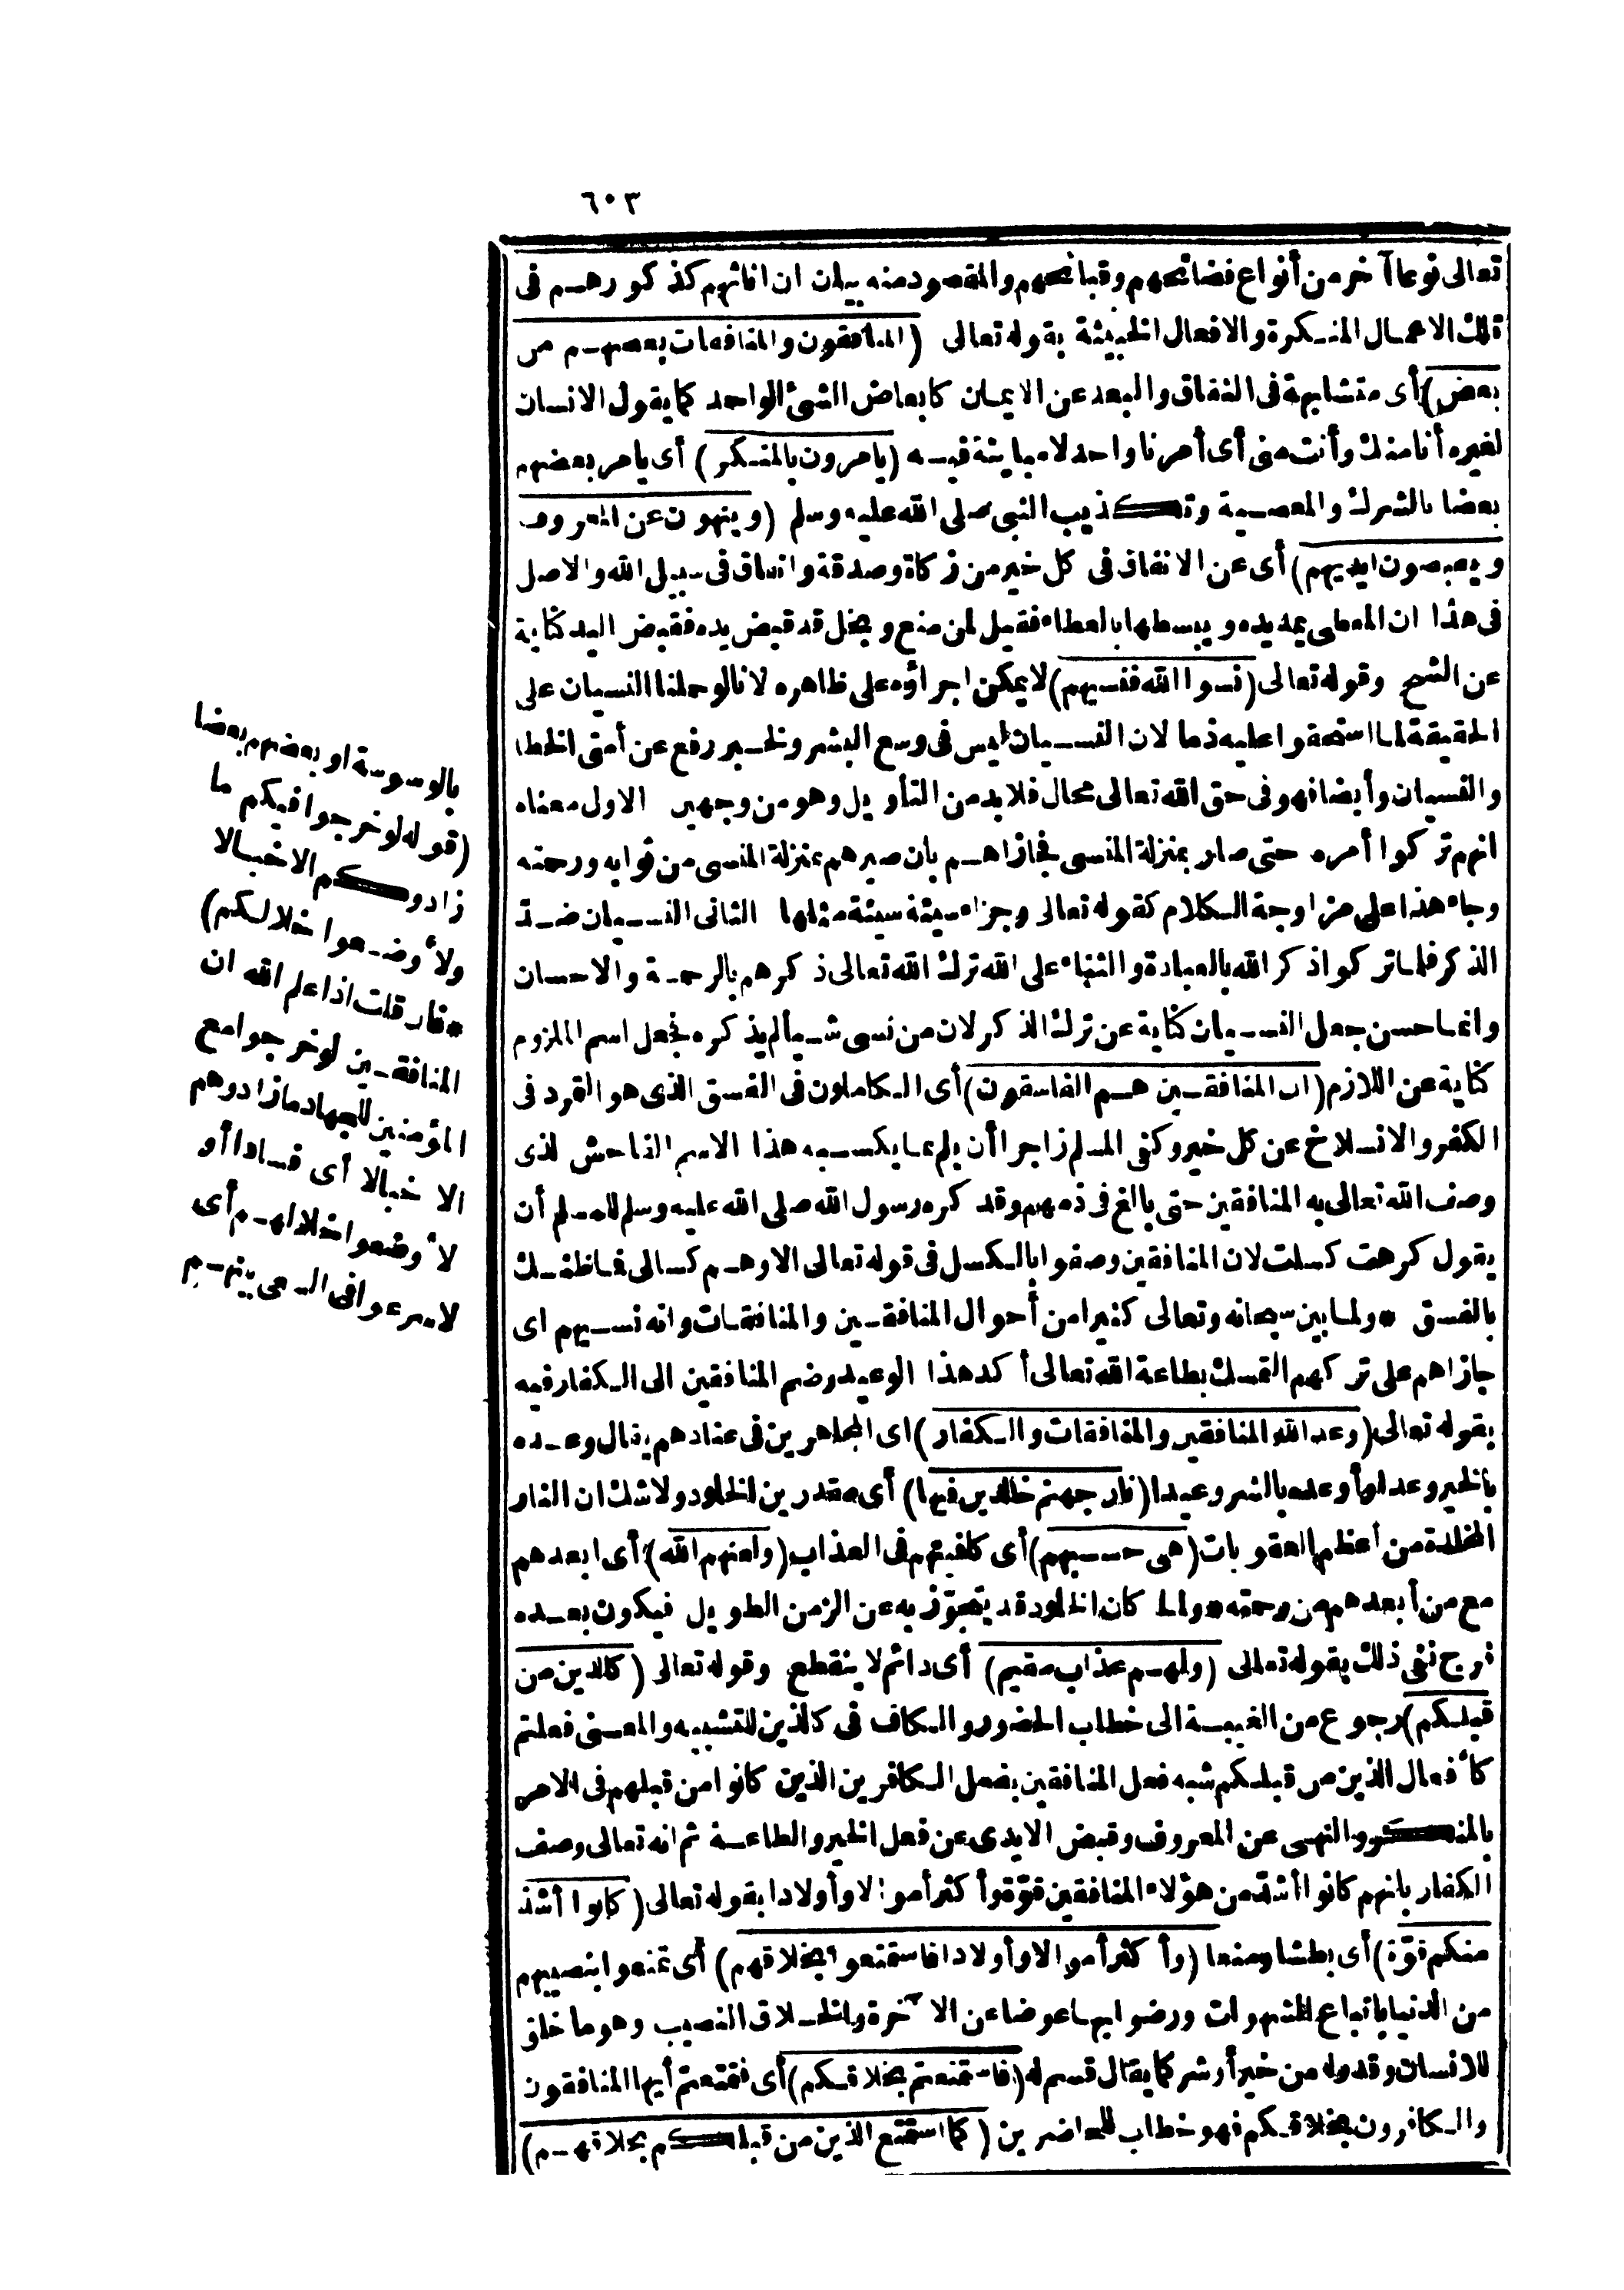 ٦٠٣
تعالى نوعا آخر من أنواع فضائحهم وقبائحهم والمقصود منه بيان ان اناثهم كذكورهم فى
تلك الاعمال المنكرة والافعال الخبيثة بقوله تعالى (المنافقون والمنافقات بعضهم من
بعض) أى متشابهة فى النفاق والبعد عن الايمان كابعاض الشئ الواحد كما يقول الانسان
لغيره أنا منك وأنت منى أى أمرنا واحد لا مباينة فيه (يامرون بالمنكر) أى يامر بعضهم
بعضا بالشرك والمعصية وتكذيب النبى صلى الله عليه وسلم (وينهون عن المعروف
ويقبضون ايديهم) أى عن الانفاق فى كل خير من زكاة وصدقة وانفاق فى سبيل الله والاصل
فى هذا ان المعطى يمد يده ويبسطها بالعطاء فقيل لمن منع وبخل قد قبض يده فقبض اليد كناية
عن الشح وقوله تعالى (نسوا الله فنسيهم) لا يمكن اجراؤه على ظاهره لانالو حملنا النسيان على
الحقيقة لما استحقوا عليه ذما لان النسيان ليس فى وسع البشر ولخبر رفع عن أمتى الخطا
والنسيان وأيضا فهو فى حق الله تعالى محال فلا بد من التأويل وهو من وجهين الاول معناه
انهم تركوا أمره حتى صار بمنزلة المنسى فجازاهم بان صيرهم بمنزلة المنسى من ثوابه ورحمته
وجاء هذا على مزاوجة الكلام كقوله تعالى وجزاء سيئة سيئة مثلها الثانى النسيان ضد
الذكر فلما تركوا ذكر الله بالعبادة والثناء على الله ترك الله تعالى ذكرهم بالرحمة والاحسان
وانما حسن جعل النسيان كناية عن ترك الذكر لان من نسى شيأ لم يذكره فجعل اسم الملزوم
كناية عن اللازم (ان المنافقين هم الفاسقون) أى الكاملون فى الفسق الذى هو التمرد فى
الكفر والانسلاخ عن كل خير وكفى المسلم زاجرا أن يلم بما يكسبه هذا الاسم الفاحش لذى
وصف الله تعالى به المنافقين حتى بالغ فى ذمهم وقد كره رسول الله صلى الله عليه وسلم للمسلم أن
يقول كرهت كسلت لان المنافقين وصفوا بالكسل فى قوله تعالى الا وهم كسالى فما ظنك
بالفسق * ولما بين سبحانه وتعالى كثيرا من أحوال المنافقين والمنافقات وانه نسيهم اى
جازاهم على تركهم التمسك بطاعة الله تعالى أكد هذا الوعيد وضم المنافقين الى الكفار فيه
بقوله تعالى (وعد الله المنافقين والمنافقات والكفار) اى المجاهرين فى عنادهم يقال وعده
بالخير وعدا وأوعده بالشر وعيدا (نار جهنم خالدين فيها) أى مقدرين الخلود ولا شك ان النار
المخلدة من أعظم العقوبات (هى حسبهم) أى كافيتهم فى العذاب (ولعنهم الله) أى ابعدهم
مع من أبعدهم من رحمته * ولما كان الخلود قد يتجوّز به عن الزمن الطويل فيكون بعده
فرج نفى ذلك بقوله تعالى (ولهم عذاب مقيم) أى دائم لا ينقطع وقوله تعالى (كالذين من
قبلكم) رجوع من الغيبة الى خطاب الحضور والكاف فى كالذين للتشبيه والمعنى فعلتم
كأفعال الذين من قبلكم شبه فعل المنافقين بفعل الكافرين الذين كانوا من قبلهم فى الامر
بالمنكر والنهى عن المعروف وقبض الايدى عن فعل الخير والطاعة ثم انه تعالى وصف
الكفار بانهم كانوا أشدّ من هؤلاء المنافقين قوّة وأكثر أموالا وأولادا بقوله تعالى (كانوا أشدّ
منكم قوّة) أى بطشا ومنعا (وأكثر أموالا وأولادا فاستمتعوا بخلاقهم) أى تمتعوا بنصيبهم
من الدنيا باتباع الشهوات ورضوا بها عوضا عن الآخرة والخلاق النصيب وهو ما خلق
للانسان وقدر له من خير أو شر كما يقال قسم له (فاستمتعتم بخلاقكم) أى فتمتعتم أيها المنافقون
والكافرون بخلاقكم فهو خطاب للحاضرين (كما استمتع الذين من قبلكم بخلاقهم)
بالوسوسة او بعضهم بعضا
(قوله لو خرجوا فيكم ما
زادوكم الا خبالا
ولأوضعوا خلالكم)
* فان قلت اذا علم الله ان
المنافقين لو خرجوا مع
المؤمنين للجهاد ما زادوهم
الا خبالا أى فسادا أو
لأوضعوا خلالهم أى
لاسرعوا فى السعى بينهم